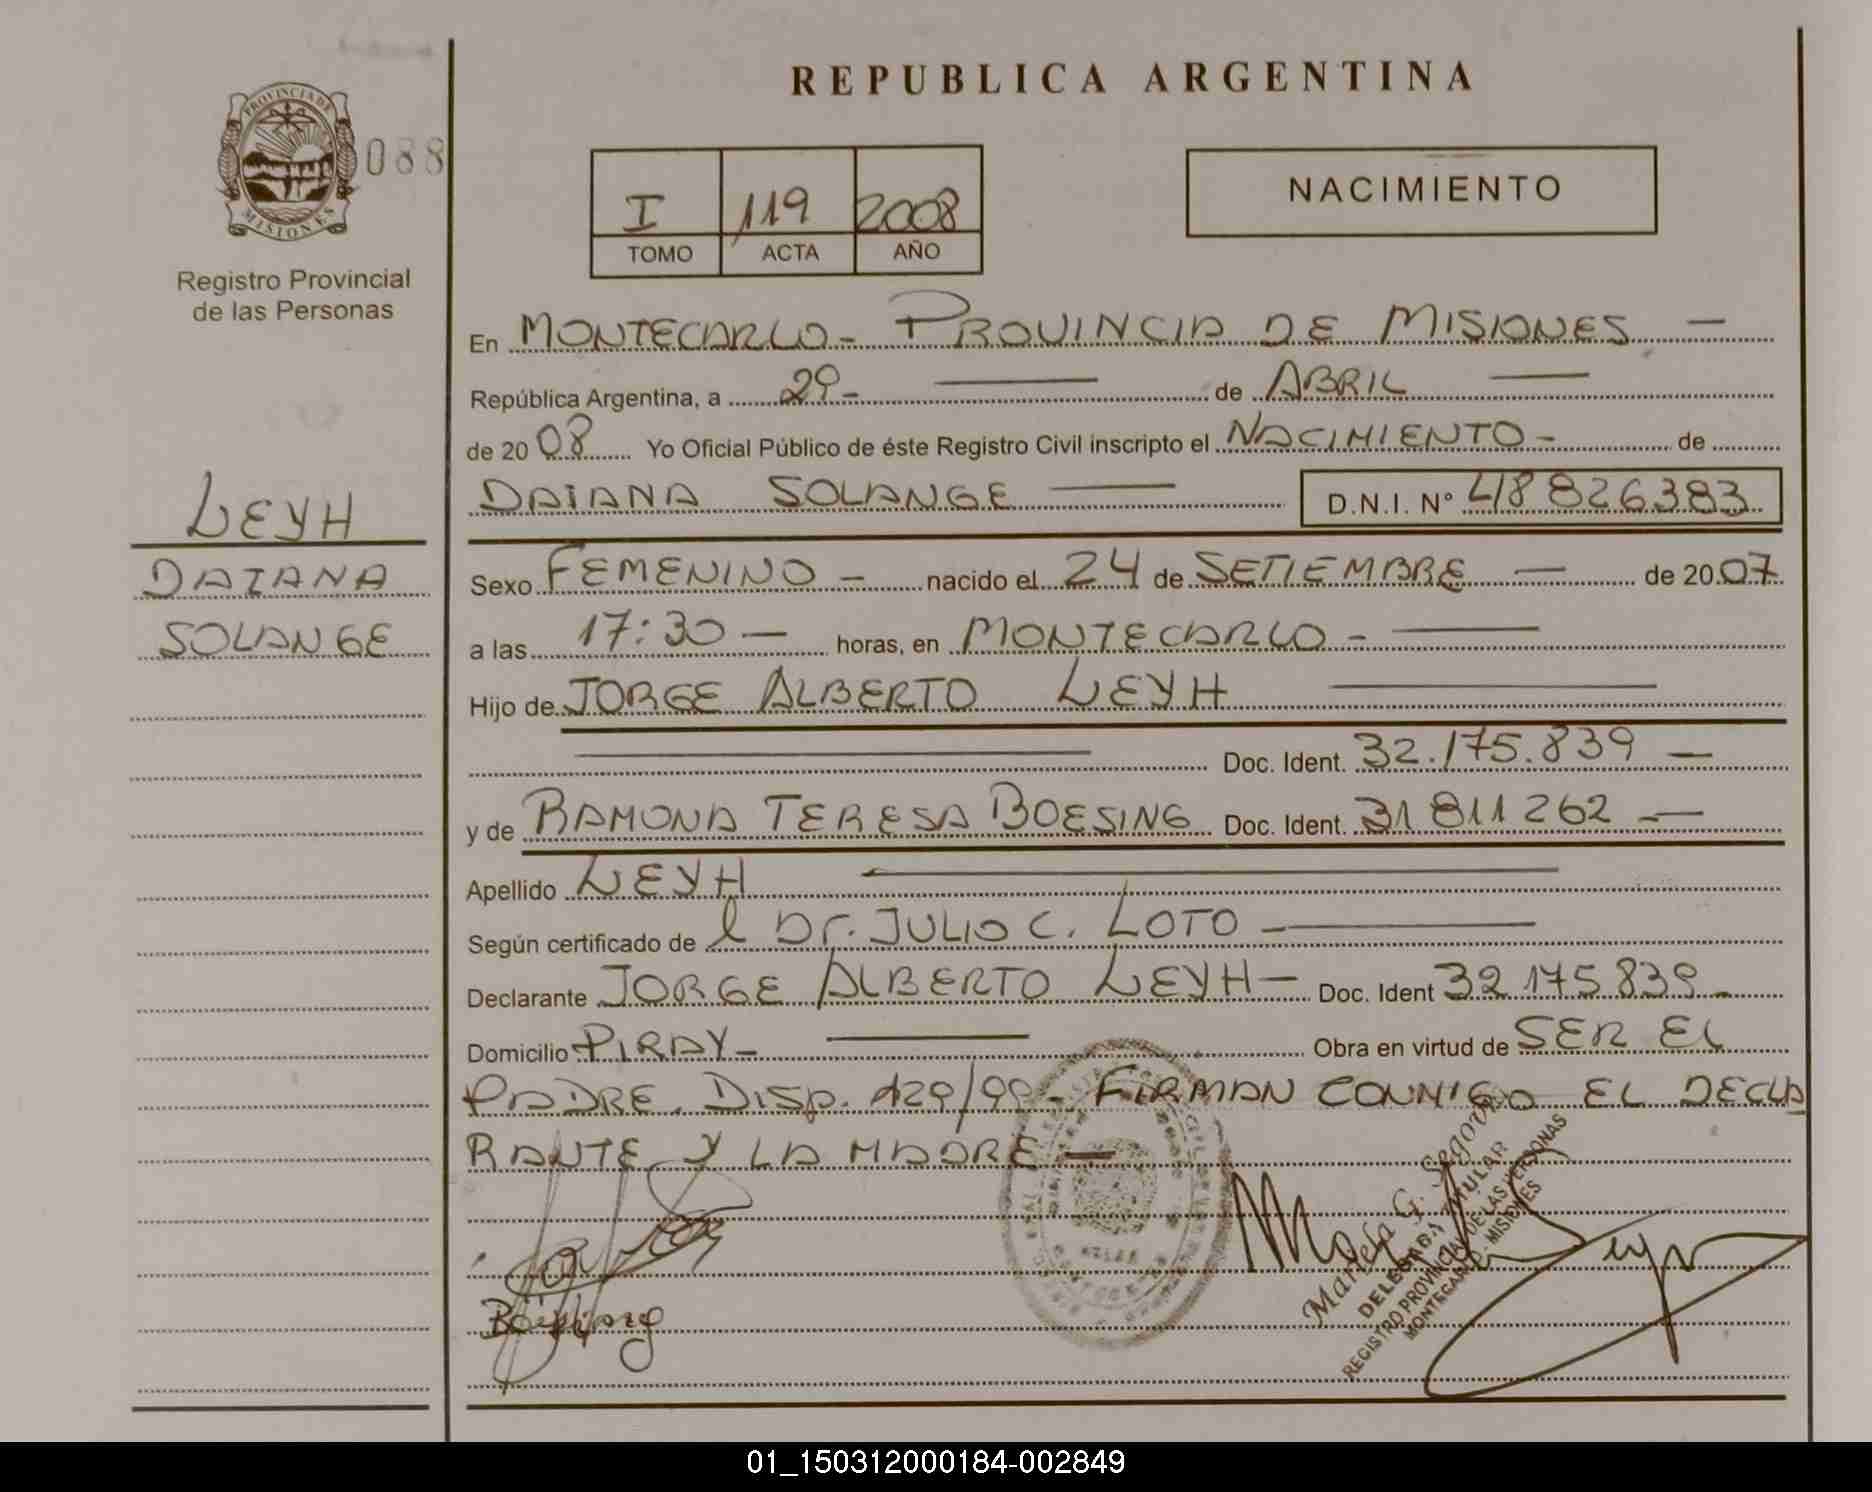 REPUBLICA ARGENTINA
PROVINCIA DE
MISIONES
088
Registro Provincial
de las Personas
I 119 2008
TOMO ACTA AÑO
NACIMIENTO
En MONTECARLO - PROVINCIA DE MISIONES —
República Argentina, a 29 - — de ABRIL —
de 2008 Yo Oficial Público de éste Registro Civil inscripto el NACIMIENTO - de
DAIANA SOLANGE — D.N.I. N° 48826383
LEYH
DAIANA
SOLANGE
Sexo FEMENINO - nacido el 24 de SETIEMBRE — de 2007
a las 17:30 — horas, en MONTECARLO - —
Hijo de JORGE ALBERTO LEYH —
— Doc. Ident. 32.175.839 —
y de RAMONA TERESA BOESING Doc. Ident. 31 811 262 -—
Apellido LEYH —
Según certificado de l Dr. JULIO C. LOTO - —
Declarante JORGE ALBERTO LEYH — Doc. Ident 32 175 839 -
Domicilio PIRAY - — Obra en virtud de SER EL
PADRE. DISP. 129/99 - FIRMAN CONMIGO EL DECLA
RANTE Y LA MADRE —
Mariela G. Segovia
DELEGADA TITULAR
REGISTRO PROVINCIAL DE LAS PERSONAS
MONTECARLO - MISIONES
01_150312000184-002849